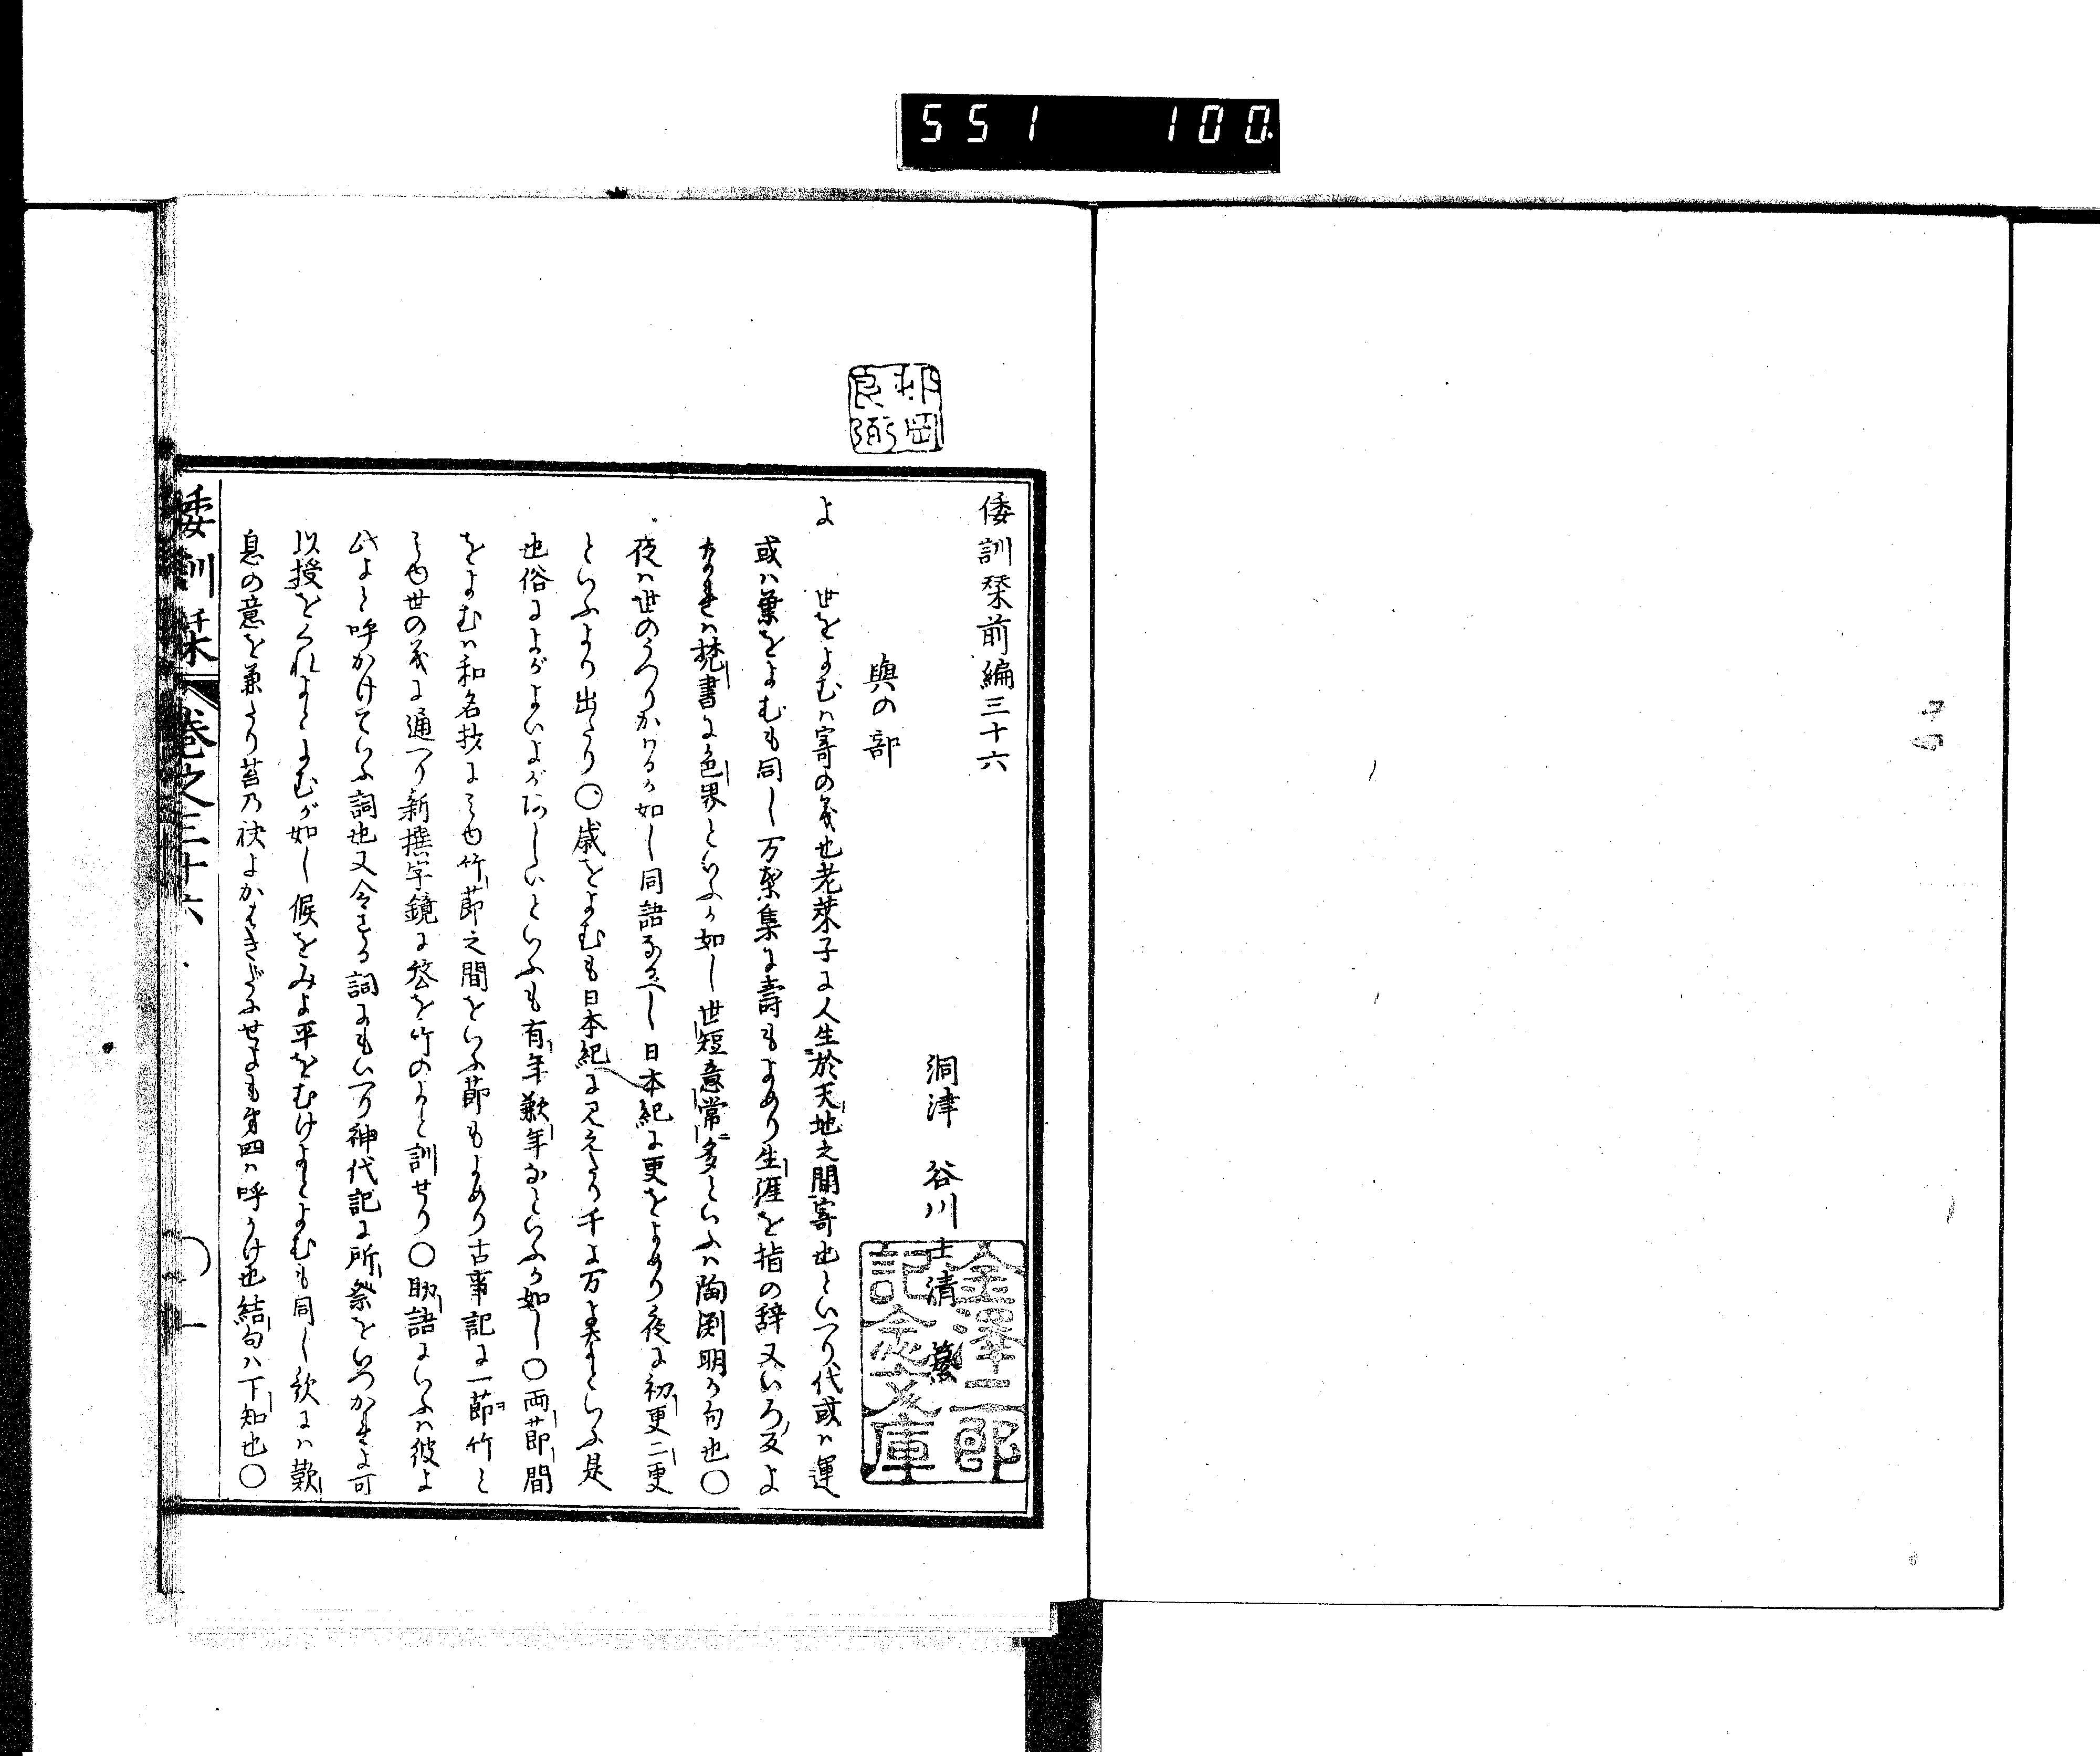 551 100
倭訓栞前編三十六
洞津 谷川士清 纂
與の部
よ 世をよむハ寄の義也老莱子に人生於天地之間寄也といへり代或ハ運
或ハ葉をよむも同し万葉集に壽もよめり生涯を指の辞又いろ反よ
なれハ梵書に色界といふか如し世短意常多といふハ陶渕明か句也〇
夜ハ世のうつりかハるか如し同語なるへし日本紀に更をよめり夜に初更二更
といふより出たり〇歳をよむも日本紀に見えたり千よ万よ美よといふ是
也俗によがよいよがわしいといふも有年歉年なといふか如し〇両節間
をよむハ和名抄にミゆ竹節之間をいふ節もよめり古事記に一節竹と
ミゆ世の義に通へり新撰字鏡に答を竹のよと訓せり〇助語にいふハ彼よ
此よと呼かけていふ詞也又令する詞にもいへり神代記に所祭をいつかれよ可
以授をくれよとよむが如し候をみよ平をむけよとよむも同し歌にハ歎
息の意を兼たり苔乃袂よかはきだにせよも第四ハ呼かけ也結句ハ下知也〇
倭訓栞 巻之三十六
〇一
邨岡良弼
金澤二郎記念文庫